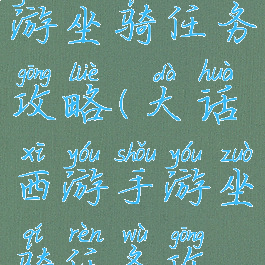 游坐骑任务
gōng lüè dà huà
攻略(大话
xī yóu shǒu yóu zuò
西游手游坐
qí rèn wù gōng
骑任务攻